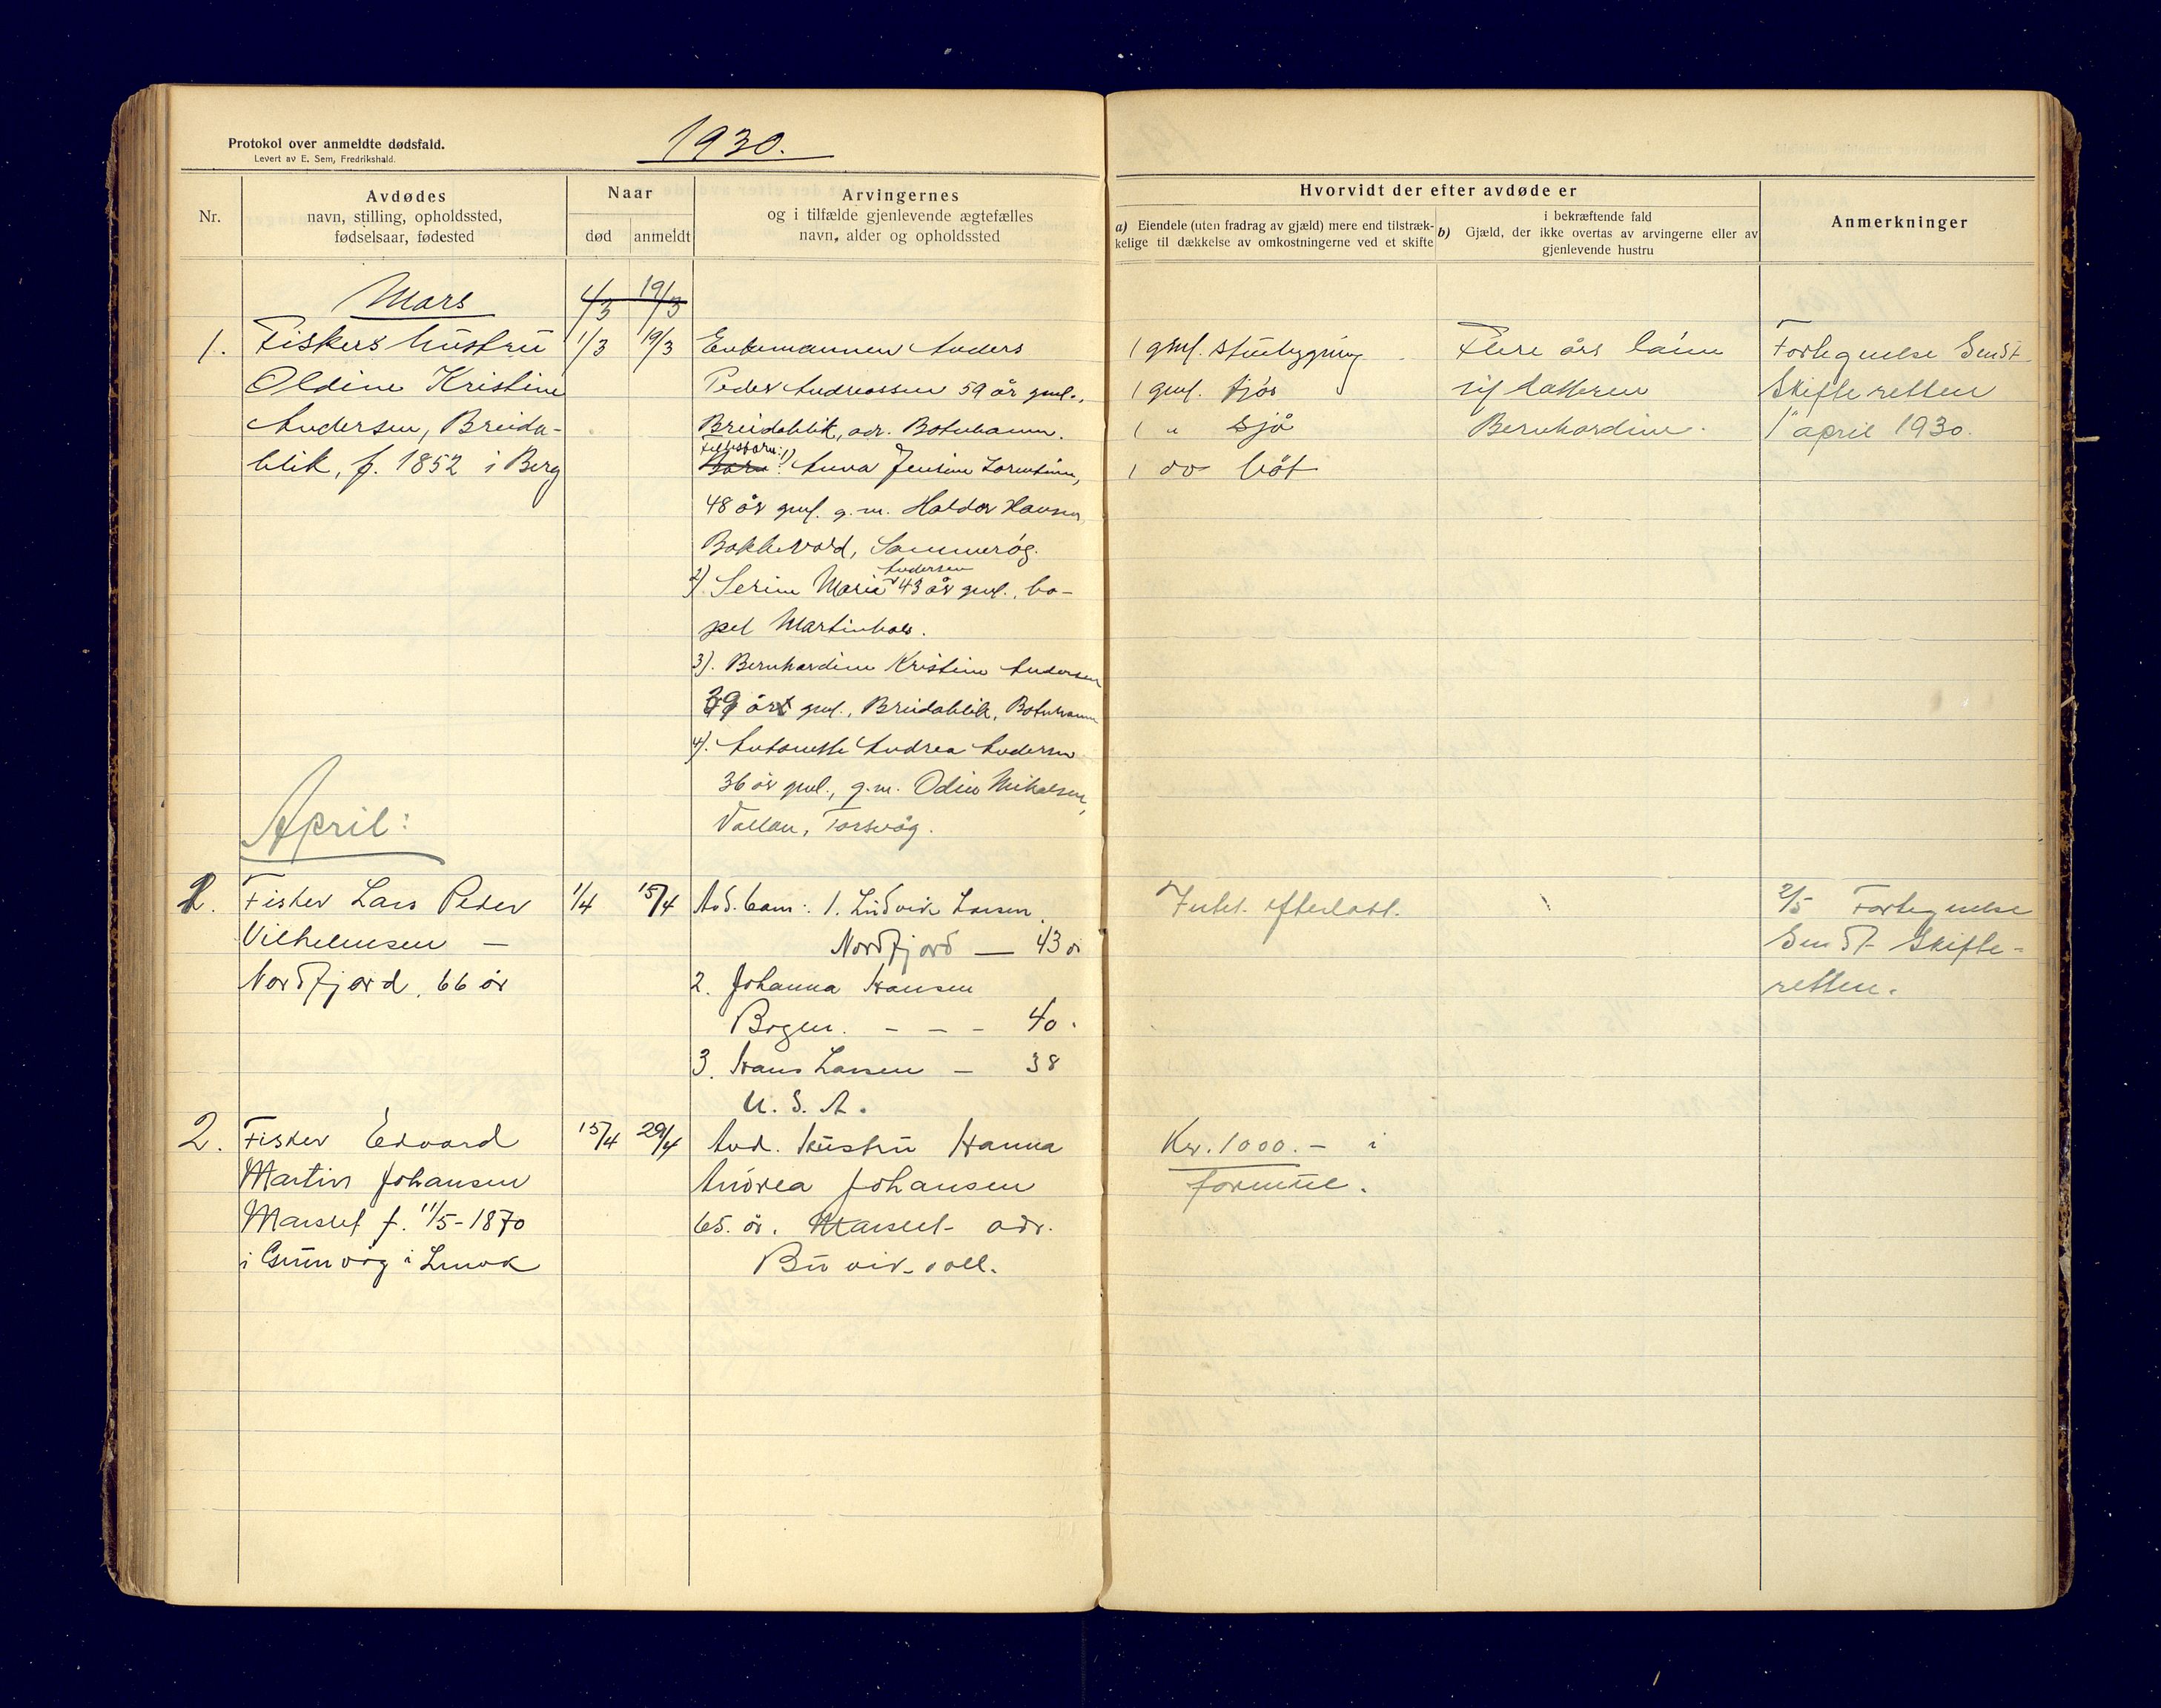 Protokol over anmeldte dødsfald.
Levert av E. Sem, Fredrikshald.
1930.
Nr.
Avdødes
navn, stilling, opholdssted,
fødselsaar, fødested
Naar
død
anmeldt
Arvingernes
og i tilfælde gjenlevende ægtefælles
navn, alder og opholdssted
Hvorvidt der efter avdøde er
a) Eiendele (uten fradrag av gjæld) mere end tilstræk-
kelige til dækkelse av omkostningerne ved et skifte
i bekræftende fald
b) Gjæld, der ikke overtas av arvingerne eller av
gjenlevende hustru
Anmerkninger
Mars
1/3 19/3
1. Fiskers hustru
Oldine Kristine
Andersen, Breida-
blik, f. 1852 i Berg
1/3 19/3
Enkemannen Anders
Peder Andreassen 59 år gml.,
Breidablik, adr. Botnhamn.
Fellesbarn:
Barn: 1) Anna Jensine Lorentine,
48 år gml. g.m. Haldor Hansen
Bakkevold, Sommerøy.
Andersen
2). Serine Marie 43 år gml., bo-
pel Martinhus.
3). Bernhardine Kristine Andersen
39 år gml., Breidablik, Botnhamn
4). Antonette Andrea Andersen
36 år gml., g.m. Odin Mikalsen,
Vallan, Torsvåg.
1 gml. stuebygning
1 gml. fjøs
1 " sjå
1 do båt
Flere års lønn
til datteren
Bernhardine.
Fortegnelse sendt
Skifteretten
1 april 1930.
April:
1. Fisker Lars Peder
Vilhelmsen —
Nordfjord, 66 år
1/4 15/4
Avd. barn: 1. Ludvik Larsen
Nordfjord — 43 år
2. Johanna Hansen
Bogen. - - - 40.
3. Hans Larsen — 38
U. S. A.
Intet efterlatt.
2/5 Fortegnelse
sendt Skifte-
retten.
2. Fisker Edvard
Martin Johansen
Marslet f. 11/5-1870
i Gunvåg i Lenvik
15/4 29/4
Avd. hustru Hanna
Andrea Johansen
65. år. Marslet adr.
Buvikvoll.
Kr. 1000.- i
formue.